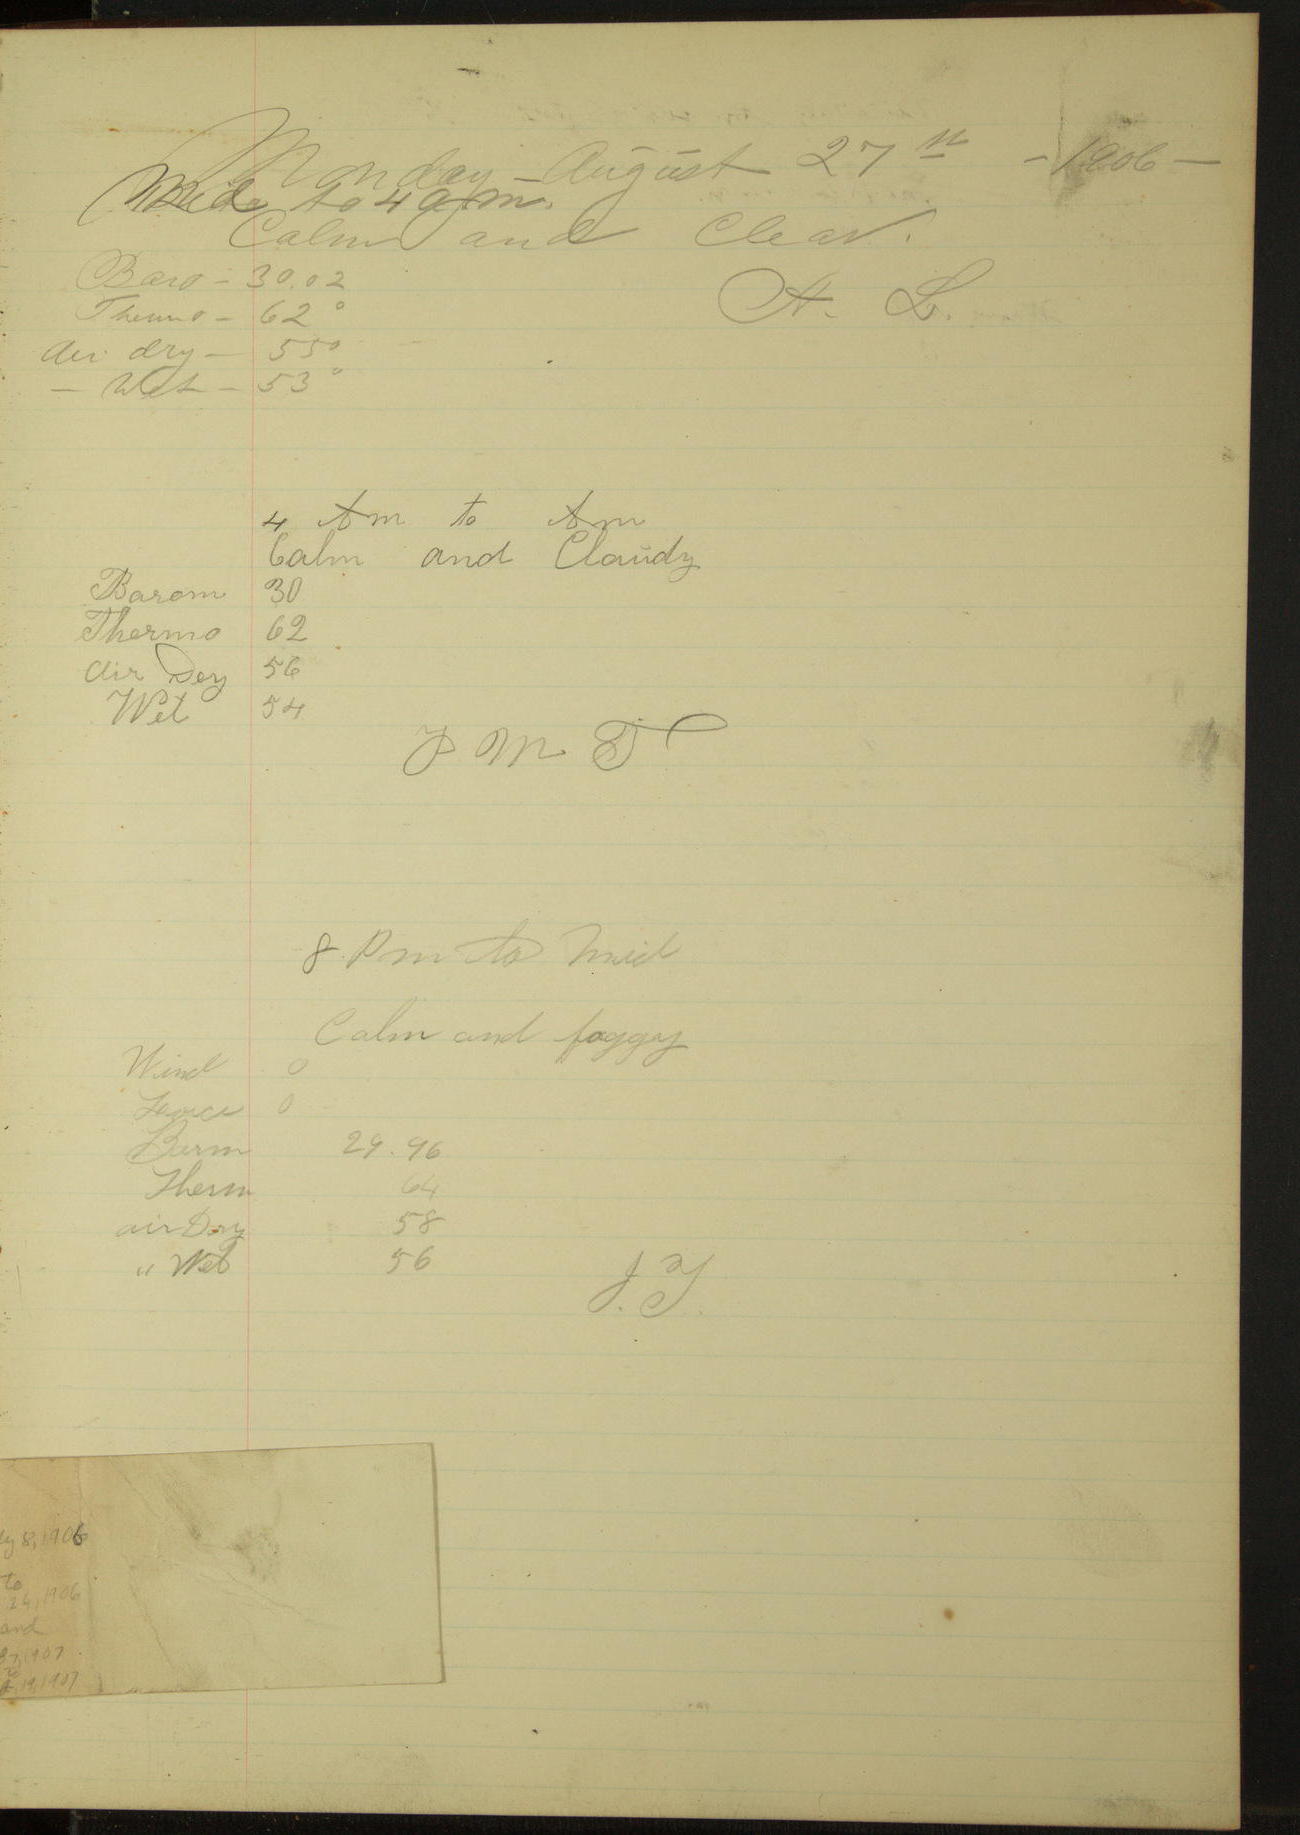 Monday – August 27th – 1906 –
Mid. to 4 am.
Calm and Clear.
Baro – 30.02
Thermo – 62°
Air dry – 55°
– Wet – 53°
A. L.
4 Am to Am
Calm and Claudy
Barom 30
Thermo 62
Air Dry 56
Wet 54
P M T
8 Pm to Mid
Calm and foggy
Wind 0
Force 0
Barm 29.96
Therm 64
air Dry 58
" Wet 56
J. Y.
ly 8, 1906
to
24, 1906
and
1907
19, 1907